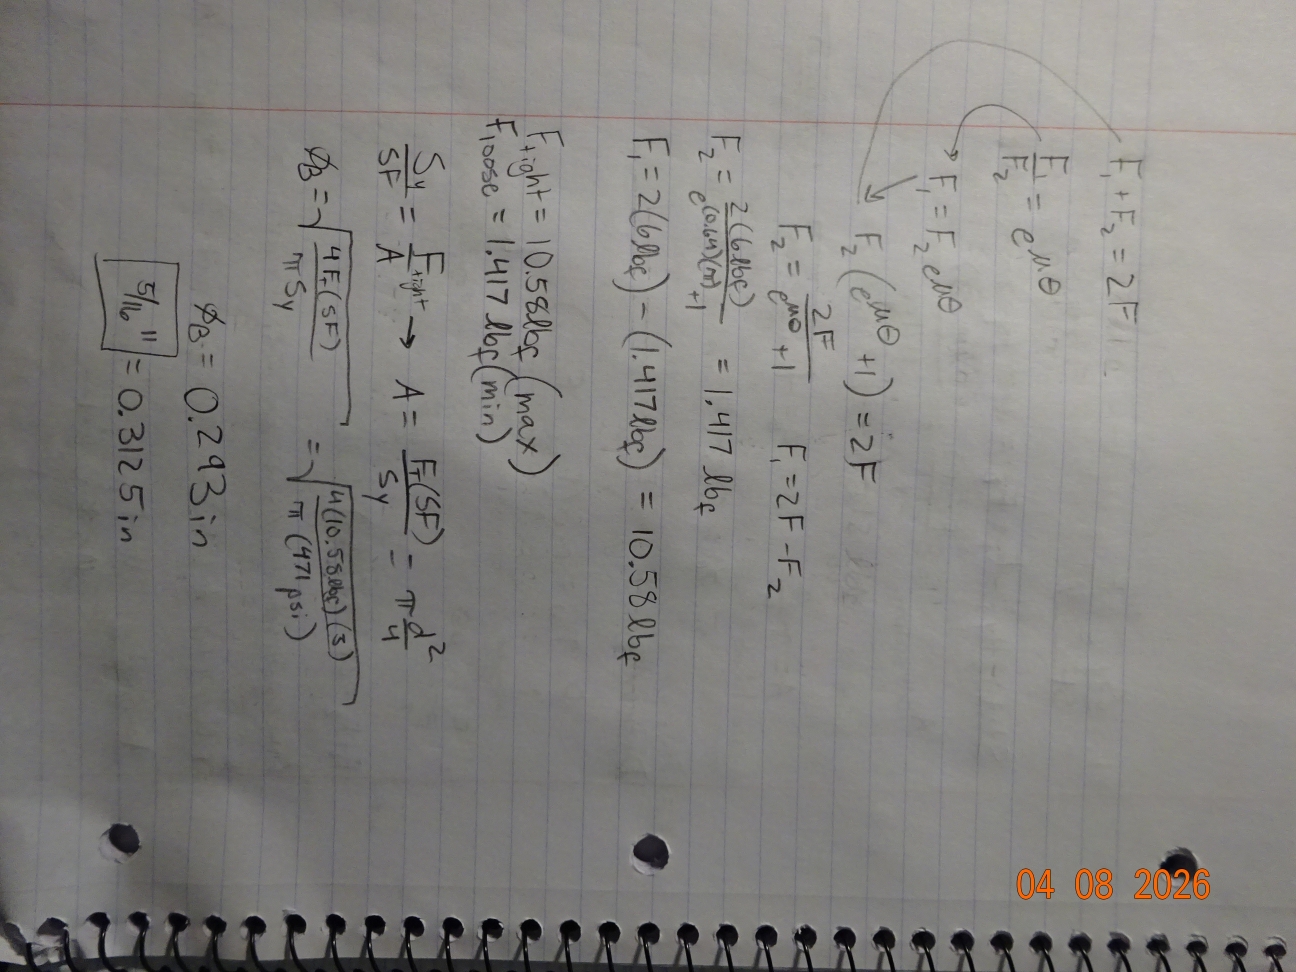 F₁ + F₂ = 2F
F₁/F₂ = e^μθ
F₁ = F₂ e^μθ
F₂ (e^μθ + 1) = 2F
F₂ = 2F/(e^μθ + 1) F₁ = 2F - F₂
F₂ = 2(6 lbf)/(e^(0.64)(π) + 1) = 1.417 lbf
F₁ = 2(6 lbf) - (1.417 lbf) = 10.58 lbf
Ftight = 10.58 lbf (max)
Floose = 1.417 lbf (min)
Sy/SF = Ftight/A → A = FT(SF)/Sy = π d²/4
ØB = √(4FT(SF)/π Sy) = √(4(10.58 lbf)(3)/π (471 psi))
ØB = 0.293 in
5/16" = 0.3125 in
04 08 2026